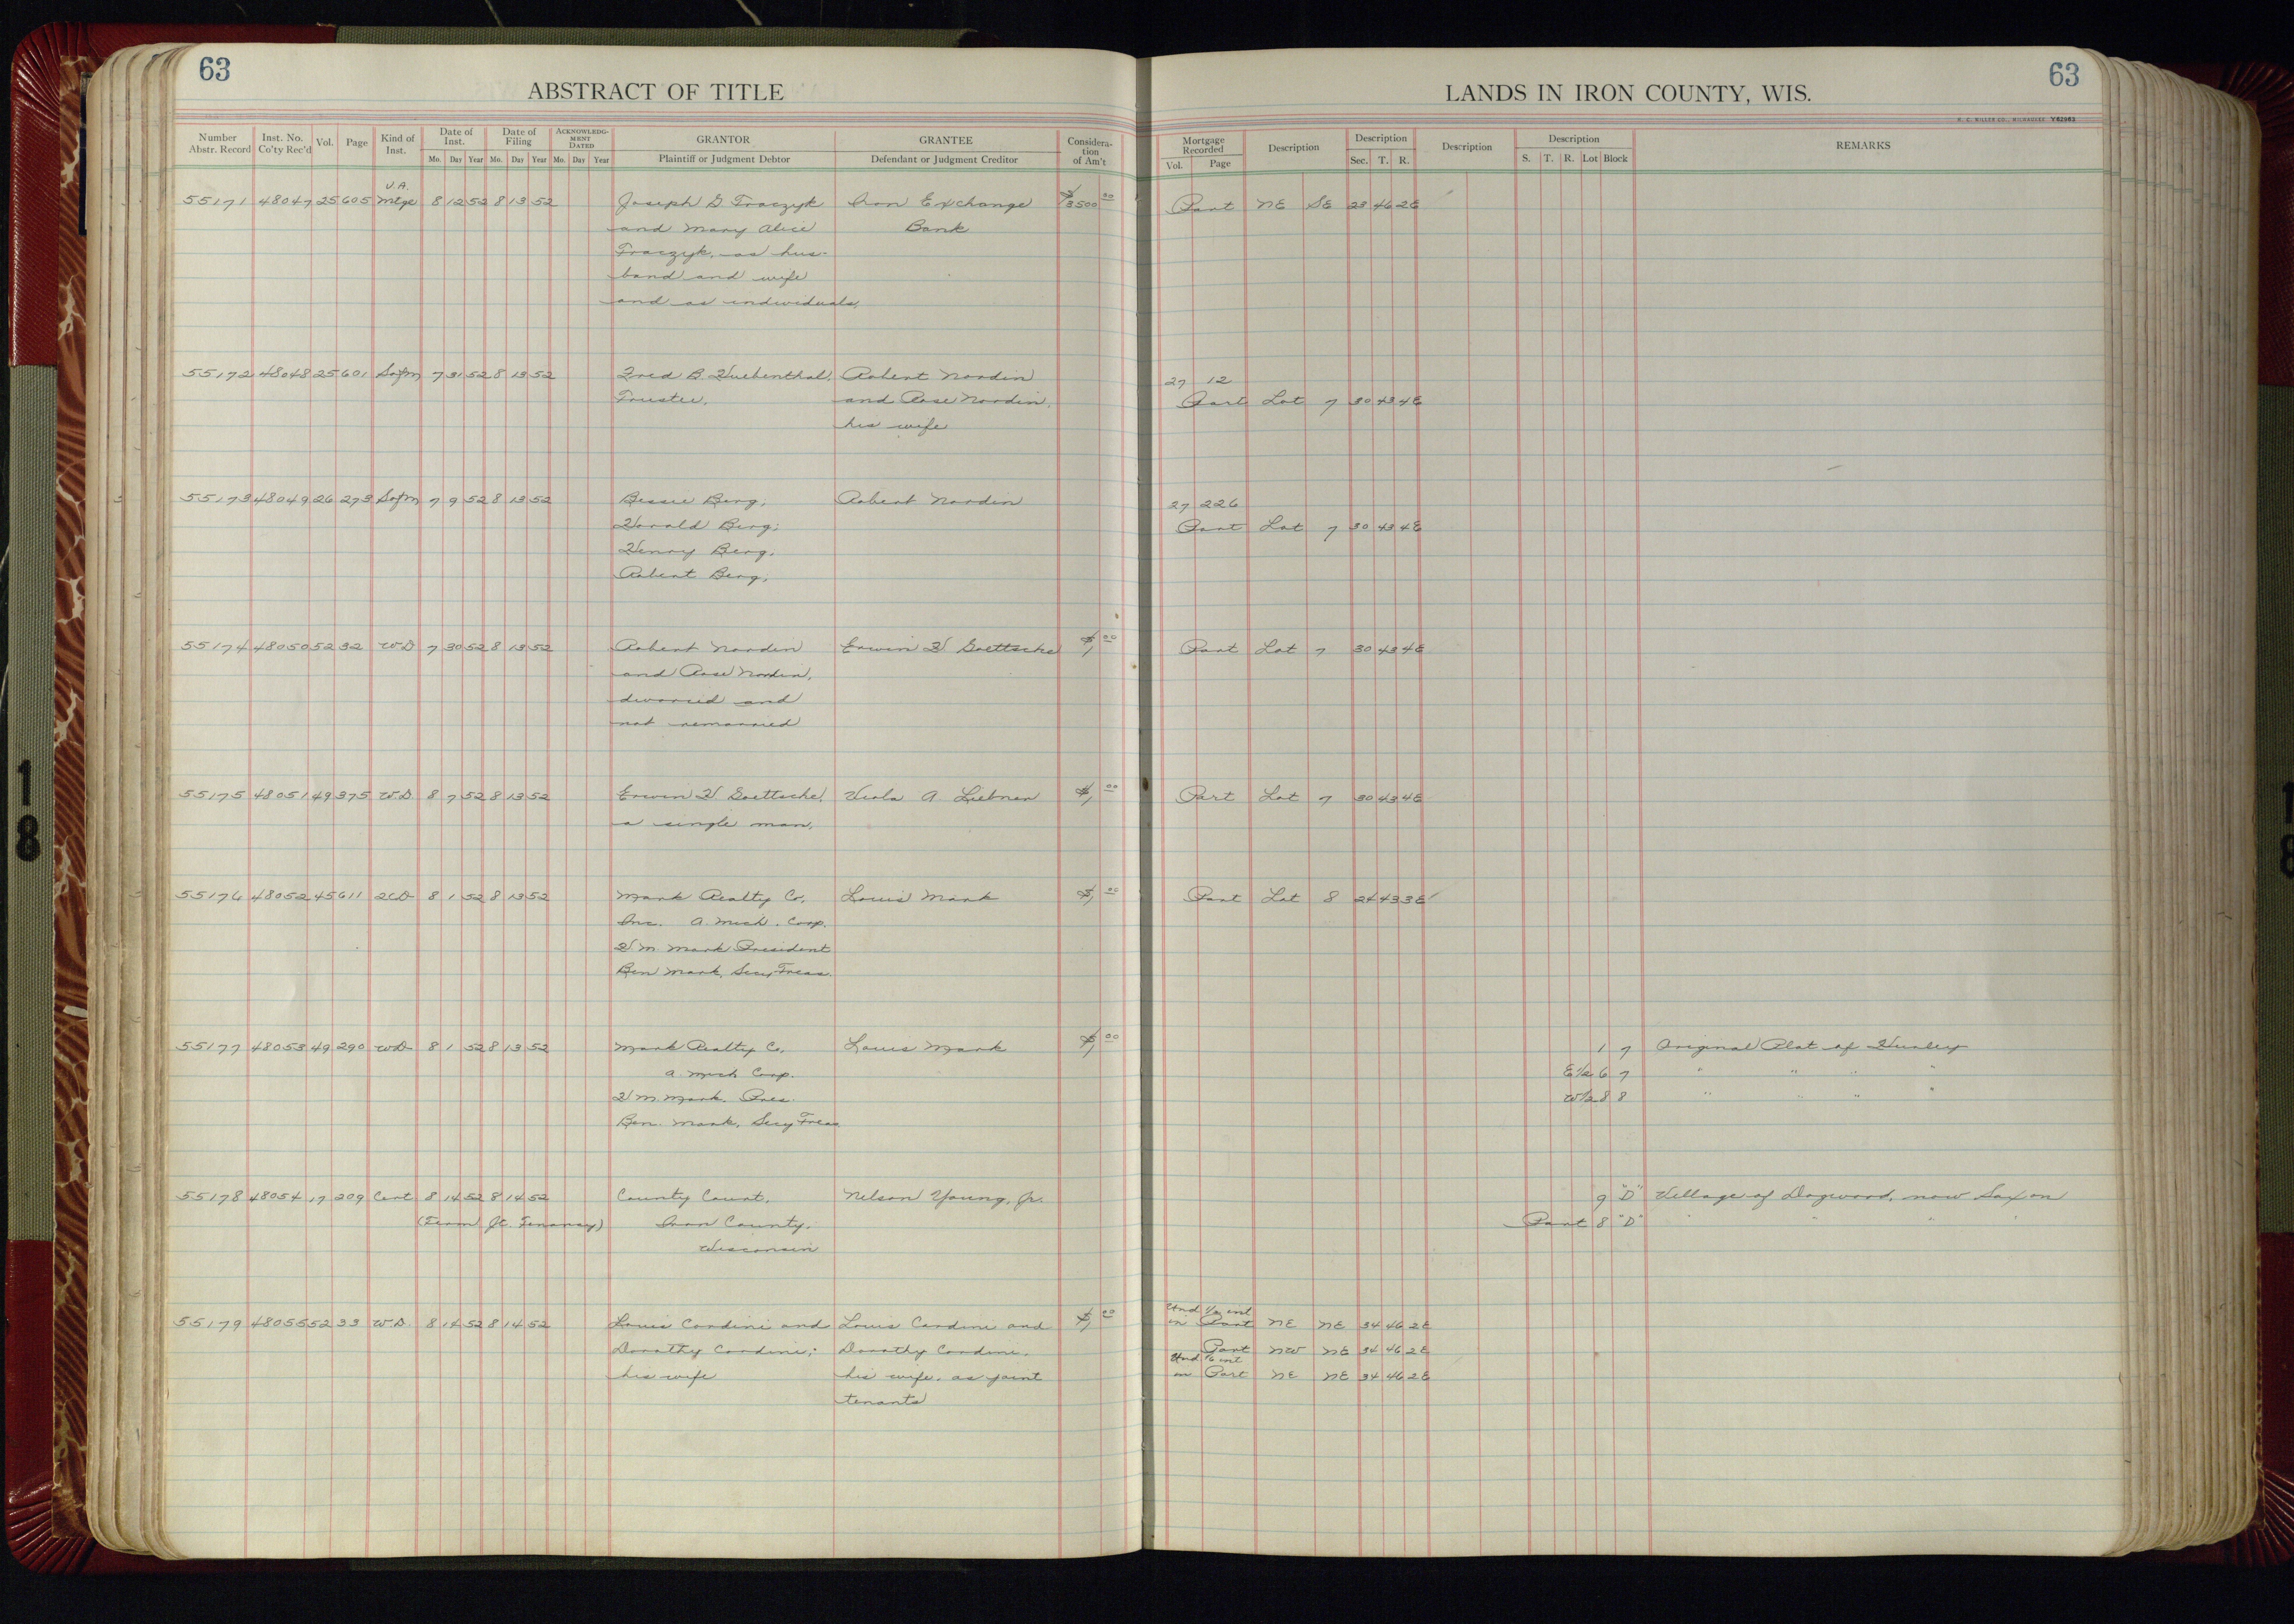 63
ABSTRACT OF TITLE
Number Abstr. Record Inst. No. Co'ty Rec'd Vol. Page Kind of Inst. Date of Inst. Date of Filing ACKNOWLEDG-MENT DATED GRANTOR GRANTEE Considera-tion of Am't
Mo. Day Year Mo. Day Year Mo. Day Year Plaintiff or Judgment Debtor Defendant or Judgment Creditor
V.A.
55171 48047 25 605 Mtge 8 12 52 8 13 52 Joseph G Traczyk Iron Exchange $3500 00
and Mary Alice Bank
Traczyk, as hus-
band and wife
and as individuals,
55172 48048 25 601 Sofm 7 31 52 8 13 52 Fred B. Huebenthal, Robert Nordin
Trustee, and Rose Nordin,
his wife
55173 48049 26 273 Sofm 7 9 52 8 13 52 Bessie Berg; Robert Nordin
Harald Berg;
Henry Berg,
Robert Berg,
55174 48050 52 32 WD 7 30 52 8 13 52 Robert Nordin Erwin H Goettsche $1 00
and Rose Nordin,
divorced and
not remarried
55175 48051 49 375 W.D. 8 7 52 8 13 52 Erwin H Goettsche, Viola A Liebner $1 00
a single man,
55176 48052 45 611 2CD 8 1 52 8 13 52 Mark Realty Co, Louis Mark $1 00
Inc. A. Mich. Corp.
H. M. Mark President
Ben Mark, Secy Treas.
55177 48053 49 290 WD 8 1 52 8 13 52 Mark Realty Co, Louis Mark $1 00
A. Mich Corp.
H M. Mark. Pres.
Ben. Mark, Secy Treas
55178 48054 17 209 Cert 8 14 52 8 14 52 County Court, Nelson Young, Jr.
(Term Jt. Tenancy) Iron County,
Wisconsin
55179 48055 52 33 W.D. 8 14 52 8 14 52 Louis Cardini and Louis Cardini and $1 00
Dorothy Cardini, Dorothy Cardini,
his wife his wife, as joint
tenants
63
LANDS IN IRON COUNTY, WIS.
H. C. MILLER CO., MILWAUKEE Y62963
Mortgage Recorded Description Description Description Description REMARKS
Vol. Page Sec. T. R. S. T. R. Lot Block
Part NE SE 23 46 2E
27 12
Part Lot 7 30 43 4E
27 226
Part Lot 7 30 43 4E
Part Lot 7 30 43 4E
Part Lot 7 30 43 4E
Part Lot 8 24 43 3E
1 7 Original Plat of Hurley
E1/2 6 7 " " " "
W1/2 8 8 " " " "
9 "D" Village of Dogwood, now Saxon
Part 8 "D" " " " "
Und 1/2 int
in Part NE NE 34 46 2E
Part NW NE 34 46 2E
Und 1/6 int
in Part NE NE 34 46 2E
1
8
1
8